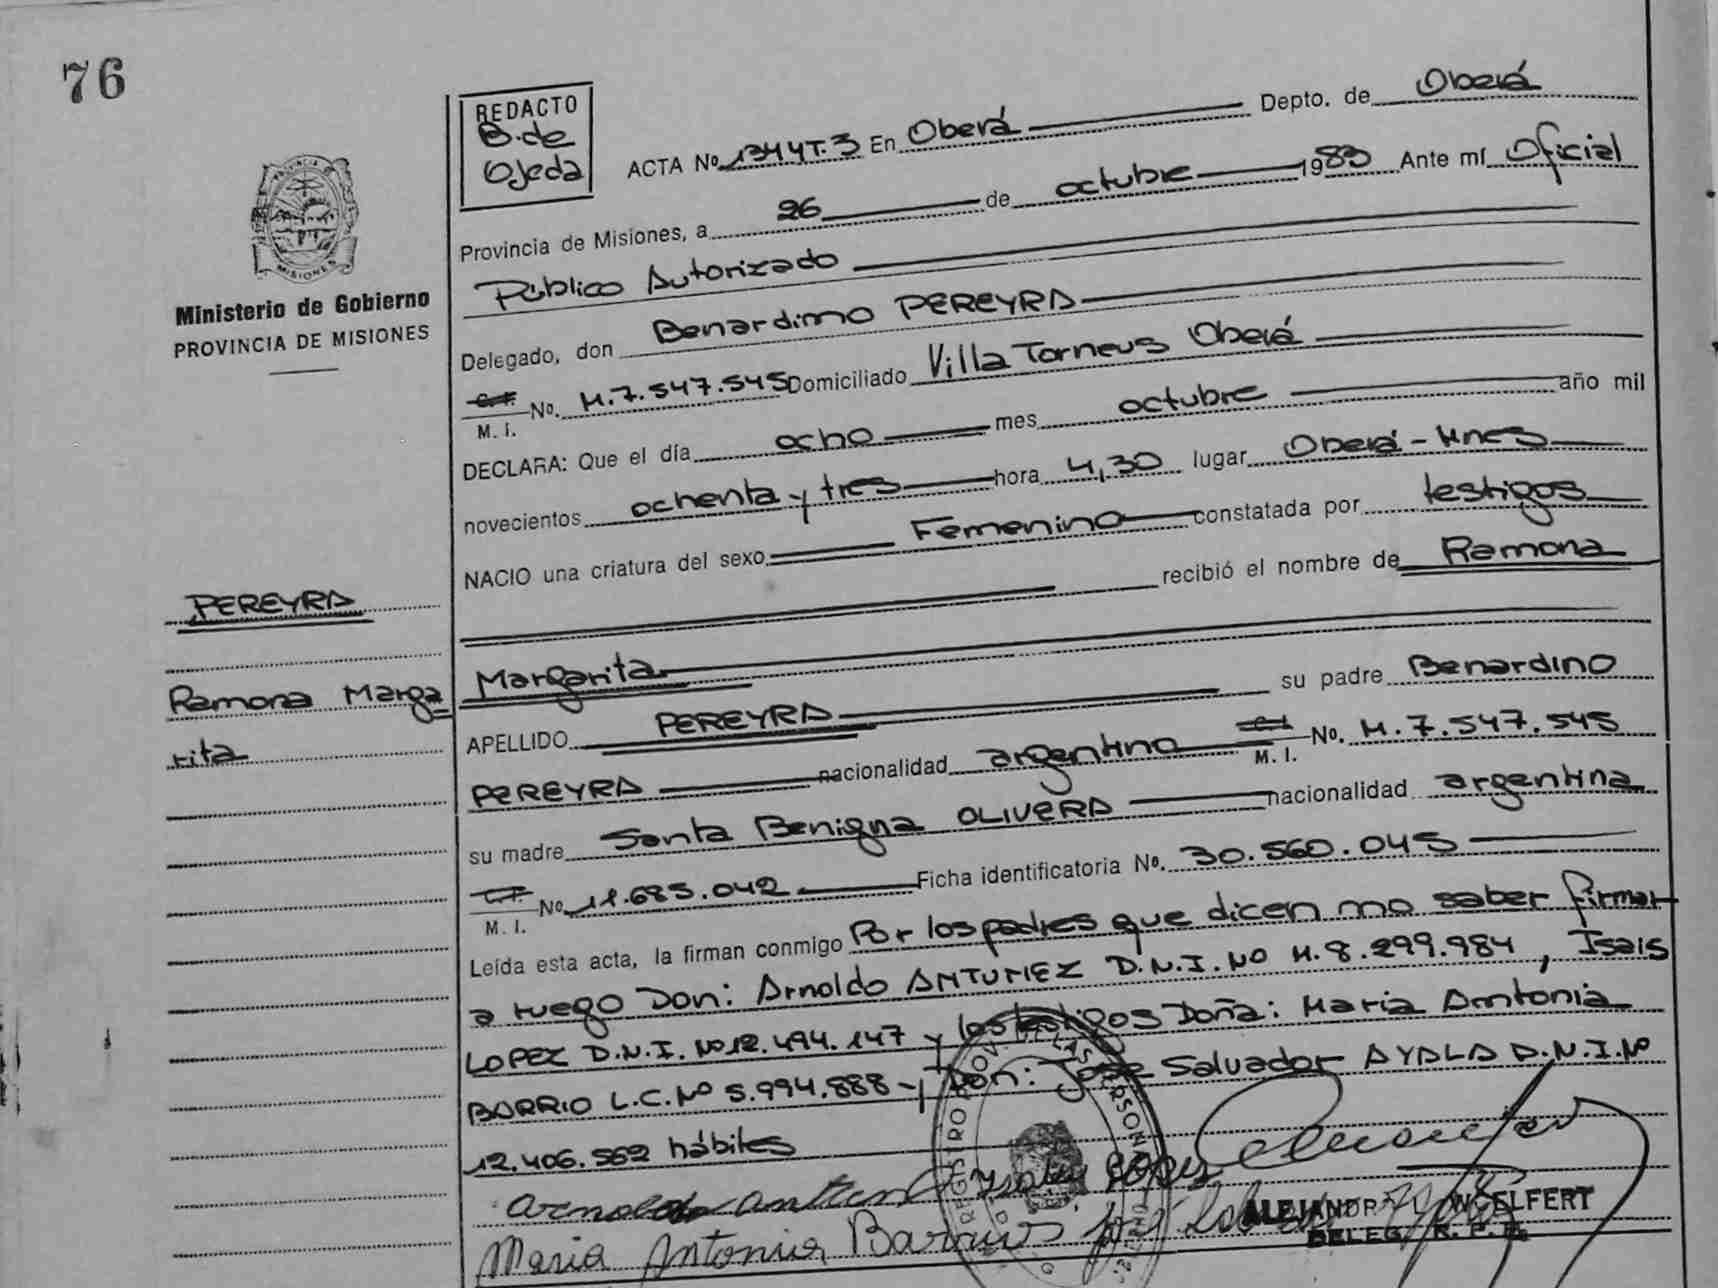 76
REDACTO
B. de
Ojeda
ACTA No 1344T.3 En Oberá Depto. de Oberá
Provincia de Misiones, a 26 de octubre 1983 Ante mí Oficial
Público Autorizado
Delegado, don Benardino PEREYRA
C.I. M. I. No. M.7.547.545 Domiciliado Villa Torneus Oberá
DECLARA: Que el día ocho mes octubre año mil
novecientos ochenta y tres hora 4,30 lugar Oberá - Mnes
NACIO una criatura del sexo Femenino constatada por testigos
recibió el nombre de Ramona
Margarita
APELLIDO PEREYRA su padre Benardino
PEREYRA nacionalidad argentino C.I. M. I. No. M.7.547.545
su madre Santa Benigna OLIVERA nacionalidad argentina
C.I. M. I. No 11.685.042 Ficha identificatoria Nº. 30.560.045
Leída esta acta, la firman conmigo Por los padres que dicen no saber firmar
a ruego Don: Arnoldo ANTUNEZ D.N.I. Nº M.8.299.984, Isais
LOPEZ D.N.I. Nº 12.494.147 y los testigos Doña: Maria Antonia
BORRIO L.C. Nº 5.994.888 - y Don: Jose Salvador AYALA D.N.I. Nº
12.406.562 hábiles
Arnoldo
Maria Antonia
MISIONES
Ministerio de Gobierno
PROVINCIA DE MISIONES
PEREYRA
Ramona Marga
rita
REGISTRO PROV. DE LAS PERSONAS
DELEG. R. P. P.